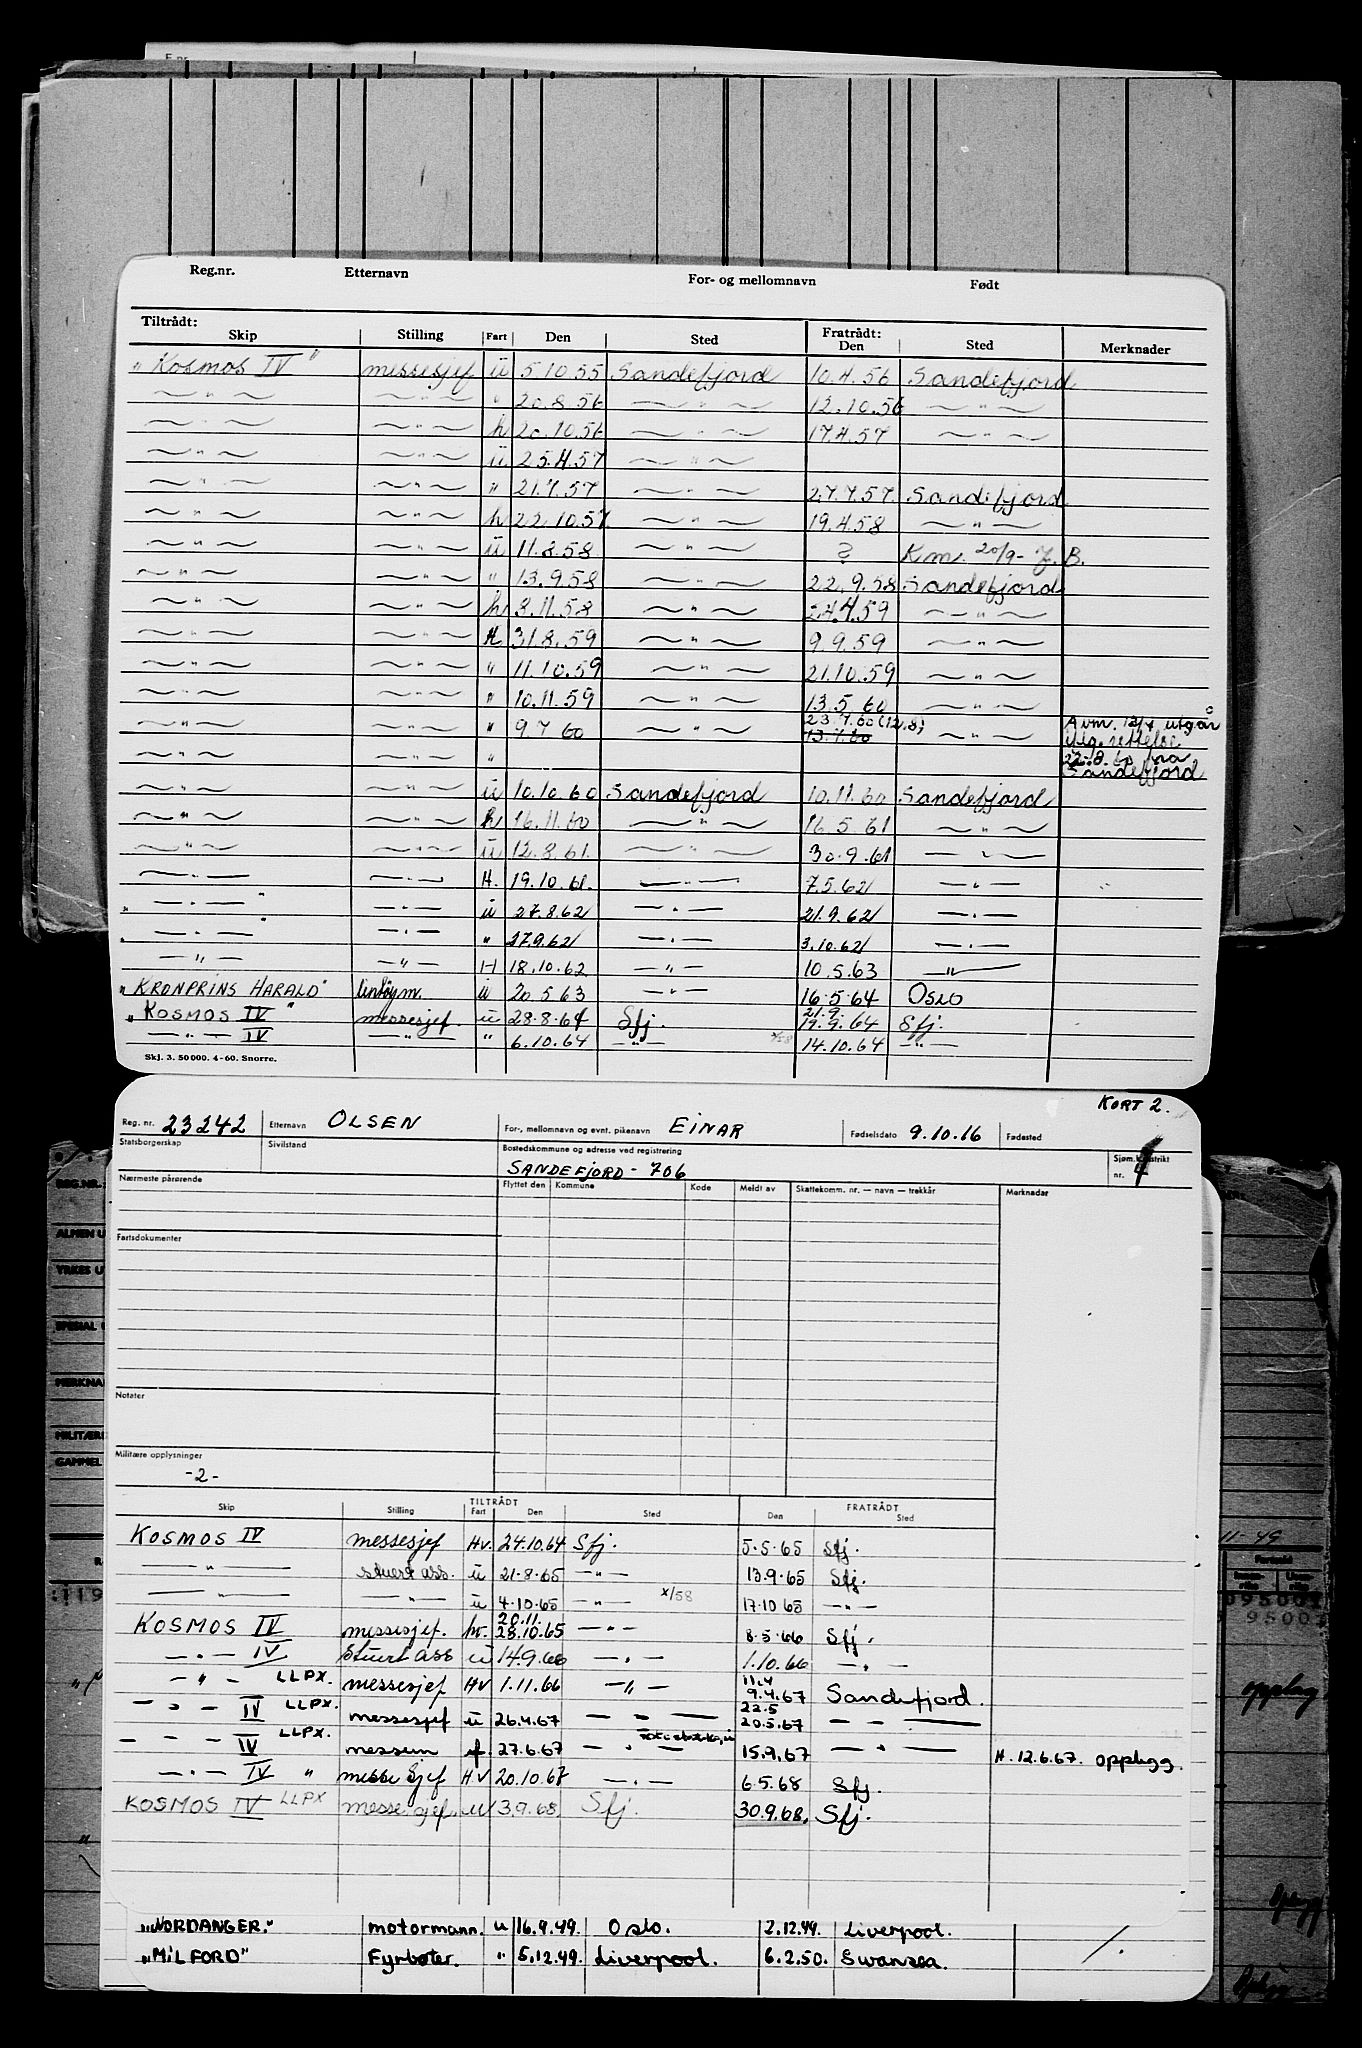 Reg.nr. Etternavn For- og mellomnavn Født
Tiltrådt: Fratrådt:
Skip Stilling Fart Den Sted Den Sted Merknader
"Kosmos IV" messesjef ü 5.10.55 Sandefjord 10.4.56 Sandefjord
— " — — " — " 20.8.56 — " — 12.10.56 — " —
— " — — " — h 20.10.56 — " — 17.4.57 — " —
— " — — " — ü 25.4.57 — " —
— " — — " — " 21.7.57 — " — 27.7.57. Sandefjord
— " — — " — h 22.10.57 — " — 19.4.58 — " —
— " — — " — ü 11.8.58 — " — ? K.m. 20/9- J.B.
— " — — " — " 13.9.58 — " — 22.9.58 Sandefjord
— " — — " — h 8.11.58 — " — 24.4.59 — " —
— " — — " — H. 31.8.59 — " — 9.9.59 — " —
— " — — " — " 11.10.59 — " — 21.10.59 — " —
— " — — " — " 10.11.59 — " — 13.5.60 — " —
— " — — " — " 9.7.60 — " — 23.7.60 (12.8) 13.7.60 — " — Avm. 12/7 utgår
— " — — " — " Utg. rettelse
22.8.60 fra
Sandefjord
— " — — " — ü 10.10.60 Sandefjord 10.11.60 Sandefjord
— " — — " — h 16.11.60 — " — 16.5.61 — " —
— " — — " — ü 12.8.61. — " — 30.9.61 — " —
— " — — " — H. 19.10.61. — " — 7.5.62 — " —
" — " — " — " — ü 27.8.62 — " — 21.9.62 — " —
" — " — " — " — " 27.9.62 — " — 3.10.62 — " —
— " — — " — H 18.10.62 — " — 10.5.63 — " —
"KRONPRINS HARALD" ü 20.5.63 — " — 16.5.64 Oslo
"KOSMOS IV" messesjef. ü 28.8.64 Sfj. 21.9. 19.9.64 Sfj.
— " — IV — " — " 6.10.64 — " — X/58 14.10.64 — " —
Skj. 3. 50 000. 4-60. Snorre.
KORT 2.
Reg. nr. 23242 Etternavn OLSEN For-, mellomnavn og evnt. pikenavn EINAR Fødselsdato 9.10.16 Fødested
Statsborgerskap Sivilstand Bostedskommune og adresse ved registrering SANDEFJORD - 706 Sjøm.k.distrikt nr. 4
Nærmeste pårørende Flyttet den Kommune Kode Meldt av Skattekomm. nr. — navn — trekkår Merknader
Fartsdokumenter
Notater
Militære opplysninger
-2-
TILTRÅDT FRATRÅDT
Skip Stilling Fart Den Sted Den Sted
KOSMOS IV messesjef Hv. 24.10.64 Sfj. 5.5.65 Sfj.
— " — stuert ass. ü 21.8.65 — " — 13.9.65 Sfj.
— " — — " — ü 4.10.65 — " — X/58 17.10.65 — " —
KOSMOS IV messesjef. hv. 20.11. 28.10.65 — " — 8.5.66 Sfj.
— " — IV Stuert ass ü 14.9.66 — " — 1.10.66 — " —
— " — LLPX. messesjef Hv 1.11.66 — " — 11.4 9.4.67 Sandefjord.
— " — IV LLPX. messesjef ü 26.4.67 — " — 22.5 20.5.67 — " —
— " — IV LLPX. 27.6.67 — " — 15.9.67 — " — H. 12.6.67. opplegg.
— " — IV " messe sjef Hv 20.10.67 — " — 6.5.68 Sfj.
KOSMOS IV LLPX messe sjef. u 3.9.68 Sfj. 30.9.68. Sfj.
"NORDANGER." motormann. u 16.9.49. Oslo. 2.12.49. Liverpool.
"MILFORD" Fyrbøter. " 5.12.49. Liverpool. 6.2.50. Swansea
REG.NR.
ALMEN U
YRKES U
SPESIAL
MERKNA
MILITÆR
GAMMEL
11-49
opplag